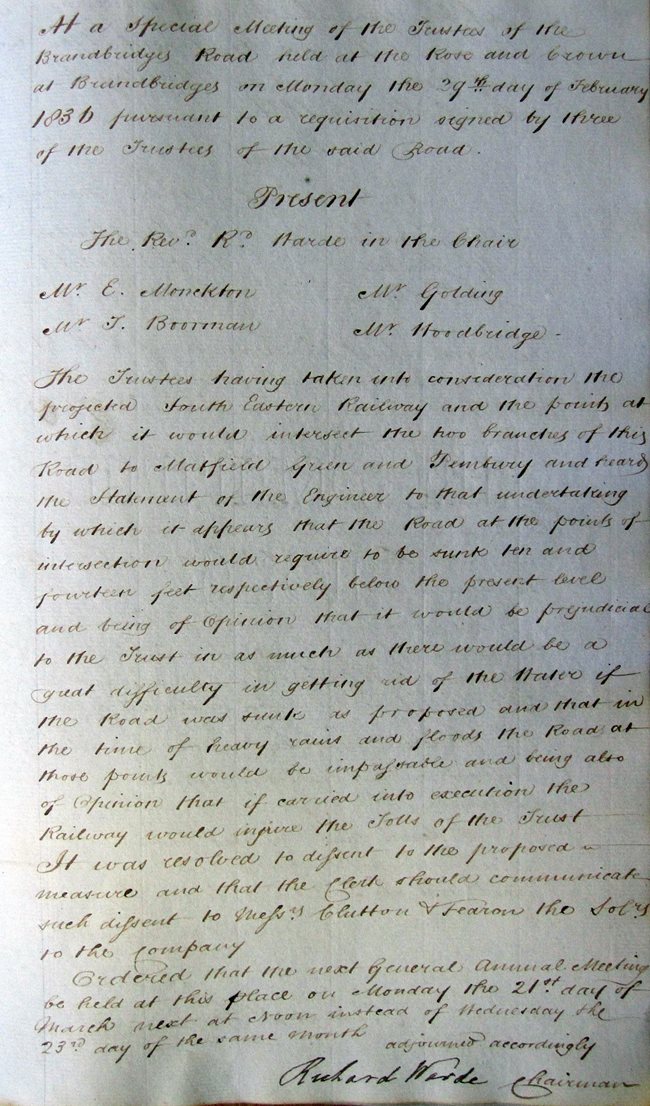 At a Special Meeting of the Trustees of the
Brandbridges Road held at the Rose and Crown
at Brandbridges on Monday the 29th day of February
1836 pursuant to a requisition signed by three
of the Trustees of the said Road.
Present
The Revd. Rd. Warde in the Chair
Mr. E. Monckton Mr. Golding
Mr. T. Boorman Mr. Woodbridge -
The Trustees having taken into consideration the
projected South Eastern Railway and the points at
which it would intersect the two branches of this
Road to Matfield Green and Pembury and heard
the Statement of the Engineer to that undertaking
by which it appears that the Road at the points of
intersection would require to be sunk ten and
fourteen feet respectively below the present level
and being of Opinion that it would be prejudicial
to the Trust in as much as there would be a
great difficulty in getting rid of the Water if
the Road was sunk as proposed and that in
the time of heavy rains and floods the Road at
those points would be impassable and being also
of Opinion that if carried into execution the
Railway would injure the Tolls of the Trust
It was resolved to dissent to the proposed
measure and that the Clerk should communicate
such dissent to Messrs Clutton & Fearon the Solrs
to the Company
Ordered that the next General Annual Meeting
be held at this place on Monday the 21st day of
March next at Noon instead of Wednesday the
23rd day of the same Month
adjourned accordingly
Richard Warde Chairman